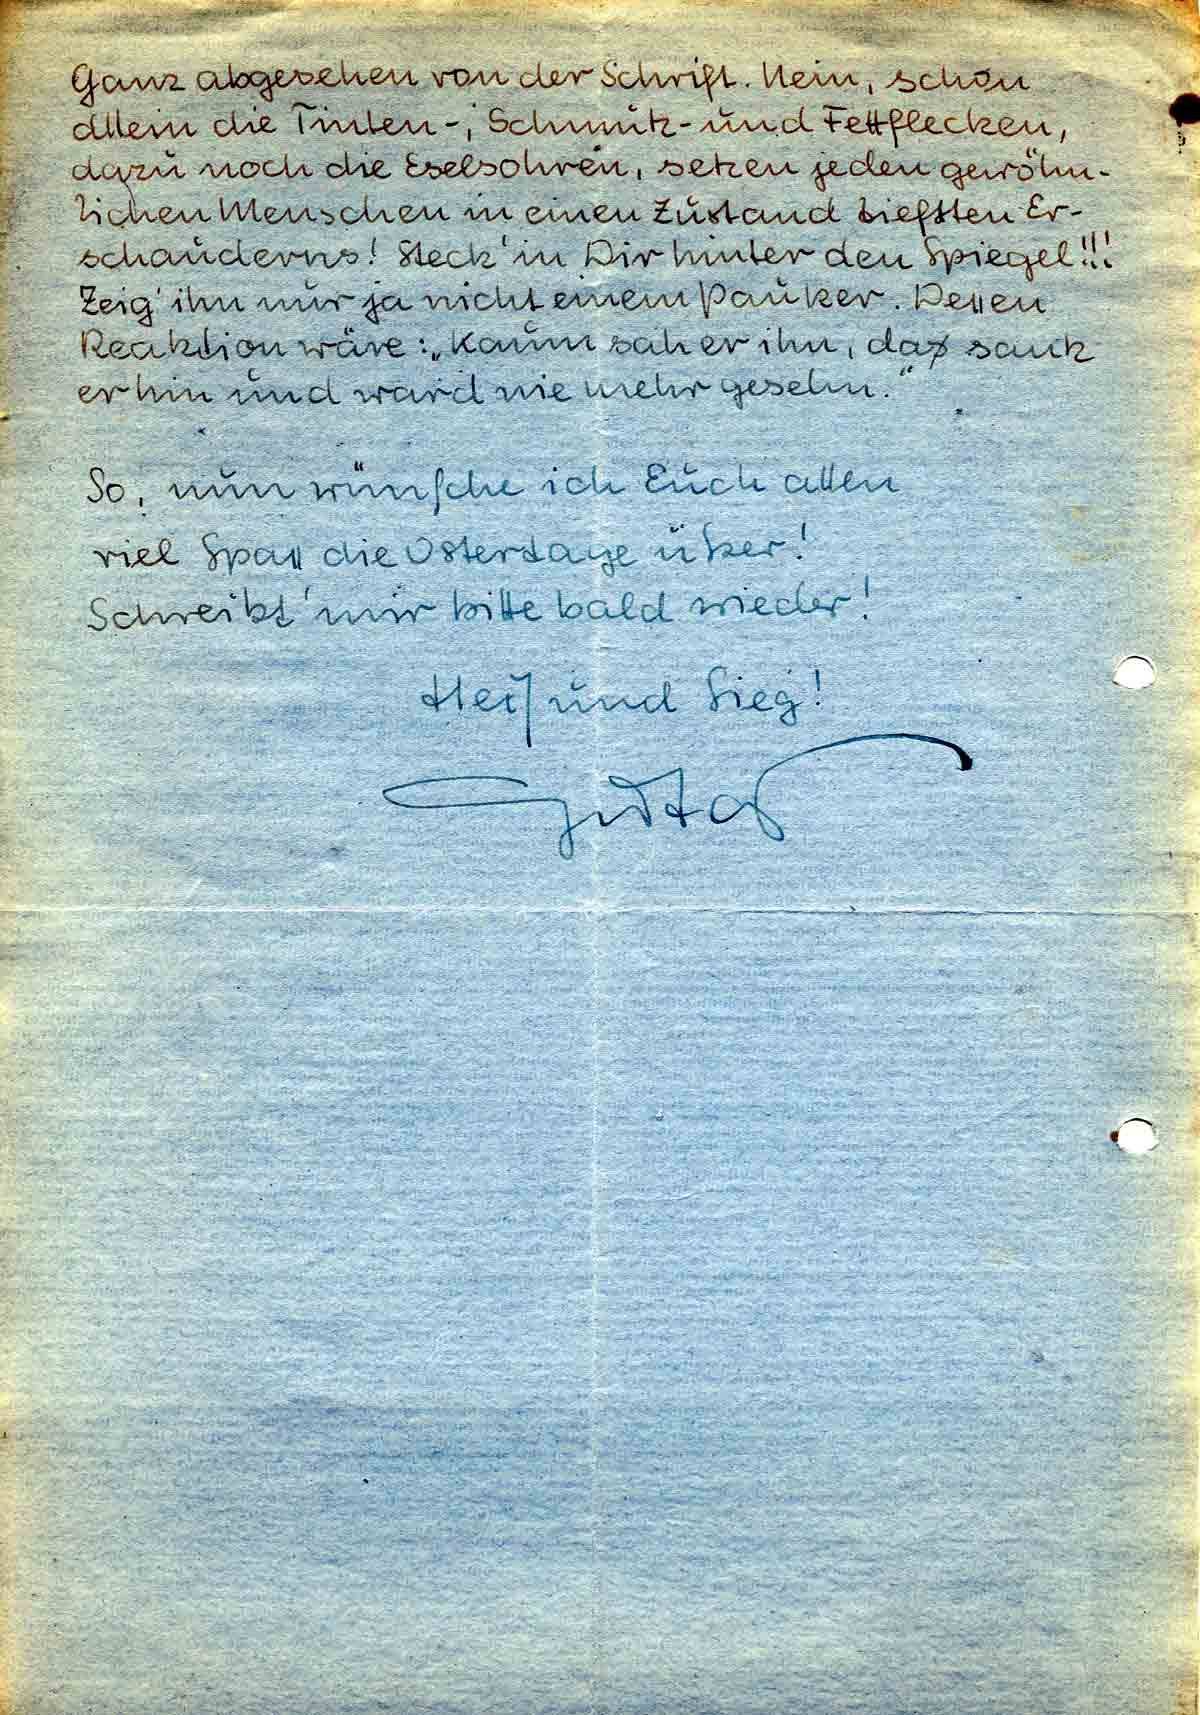 Ganz abgesehen von der Schrift. Nein, schon
allein die Tinten-, Schmutz- und Fettflecken,
dazu noch die Eselsohren, setzen jeden gewöhn-
lichen Menschen in einen Zustand tiefsten Er-
schauderns! Steck' in Dir hinter den Spiegel!!!
Zeig' ihn nur ja nicht einem Pauker. Dessen
Reaktion wäre: „Kaum sah er ihn, da sank
er hin und ward nie mehr gesehn."
So, nun wünsche ich Euch allen
viel Spass die Ostertage über!
Schreibt' mir bitte bald wieder!
Heil und Sieg!
Gustav